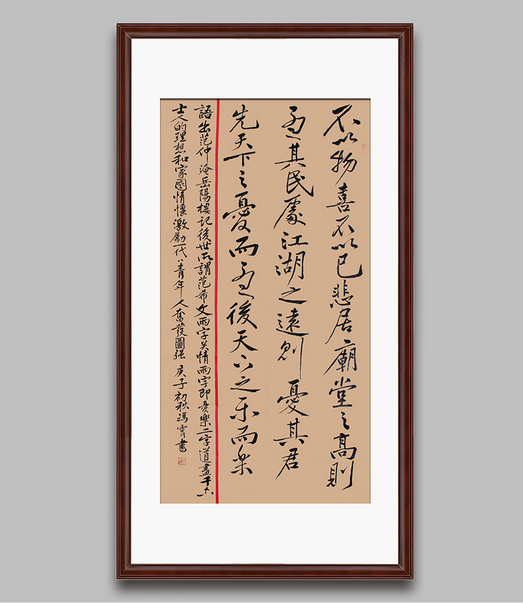 不以物喜不以己悲居廟堂之高則
憂其民處江湖之遠則憂其君
先天下之憂而憂後天下之乐而樂
語出范仲淹岳陽樓記後世所謂范希文兩字关情兩字即憂樂二字道盡千古
士人的理想和家國情懷激勵一代代青年人奮發圖强 庚子初秋書